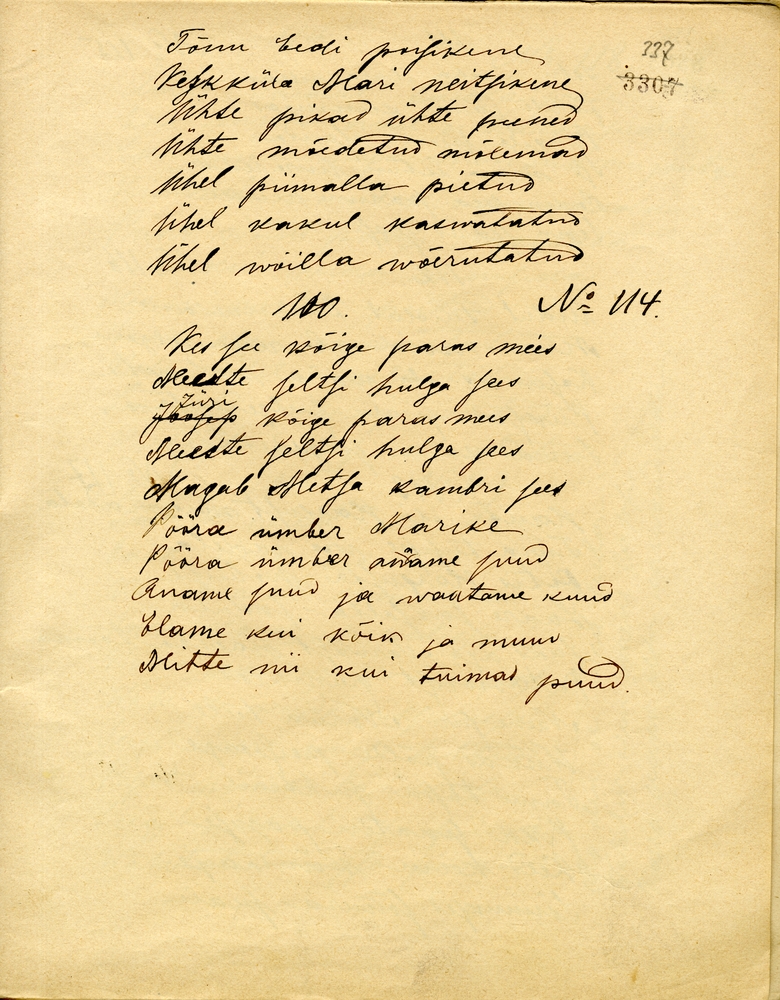 Tõnu Eedi poisikene
337
Keskküla Mari neitsikene
3307
Ühte pikad ühte peened
Ühte mõedetud mõlemad
Ühel piimalla pietud
Ühel kakul kaswatatud
Ühel wõilla wõerutatud
110.
No 114.
Kes see kõige paras mees
Meeste seltsi hulga sees
Jüri
Joosep kõige paras mees
Meeste seltsi hulga sees
Magab Metsa kambri sees
Pööra ümber Marike
Pööra ümber aname suud
Aname suud ja waatame kuud
Elame kui kõik ja muud
Mitte nii kui tuimad puud.